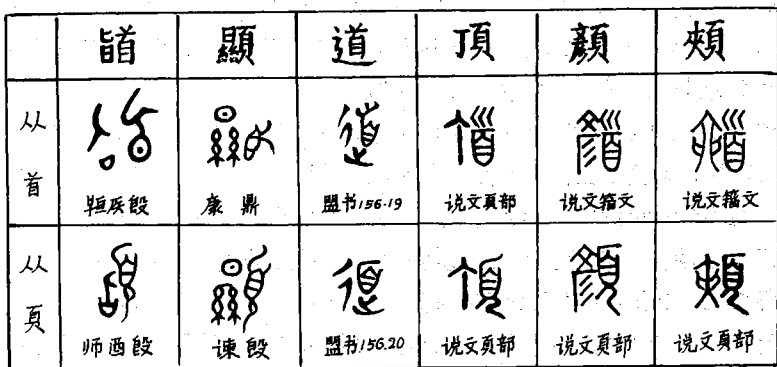 䭫 顯 道 頂 顔 頰
从首
康鼎 盟书156.19 说文頁部 说文籀文 说文籀文
从頁
师酉𣪘 谏𣪘 盟书156.20 说文頁部 说文頁部 说文頁部